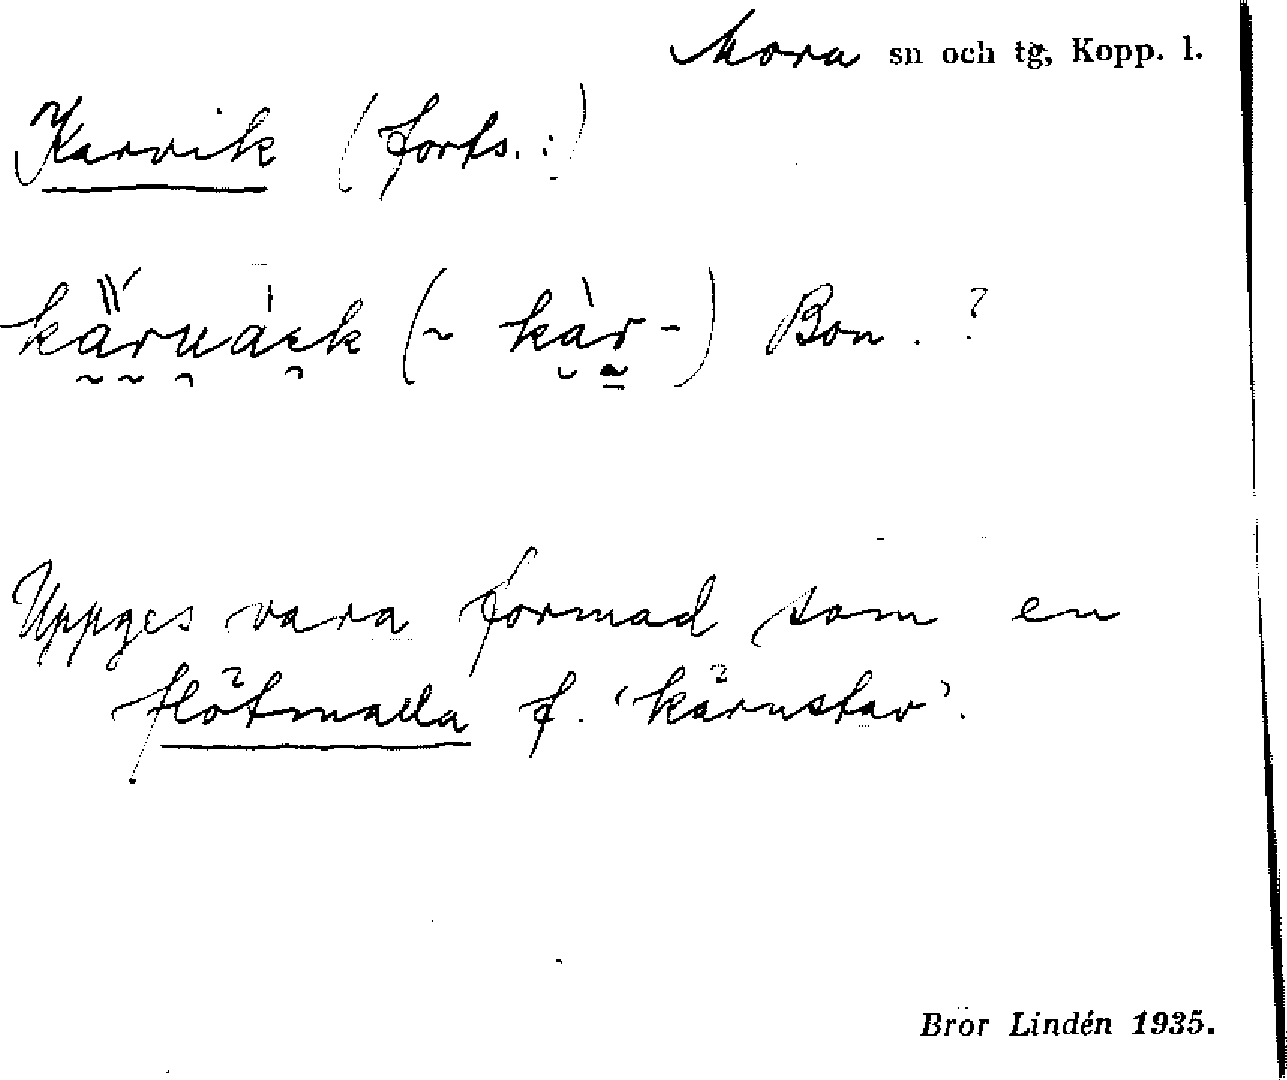 Mora sn och tg, Kopp. l.
Karvik (forts.:)
kärnáck (~ kàr-) Bon. ?
Uppges vara formad som en
flötmalla f. 'kärnstav'.
Bror Lindén 1935.